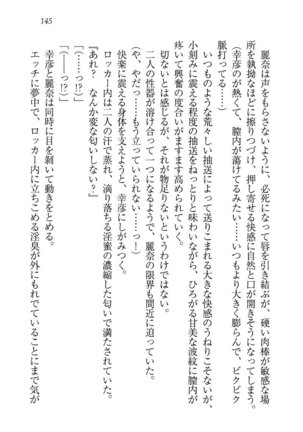 145
麗奈は声をもらさないように、必死になって唇を引き結ぶが、硬い肉棒が敏感な場
所を執拗なほどに擦りつけ、押し寄せる快感に自然と口が開きそうになってしまう。
（幸彦のが熱くて、膣内が蕩けてるみたい……いつもより大きく膨らんで、ビクビク
脈打ってる……）
いつものような荒々しい抽送によって送りこまれる大きな快感のうねりこそないが、
小刻みに震える程度の抽送をねっとりと味わいながら、ひろがる甘美な波紋に膣内が
疼いて興奮の度合いがますます高められていく。
切ないとは感じるが、それが物足りないというわけではない。
二人の性器が溶け合って一つになるようで、麗奈の限界も間近に迫っていた。
（や、やだっ……もう立っていられない……っ！）
快楽に震える身体を支えようと、幸彦にしがみつく。
ロッカー内は二人の汗で蒸れ、滴り落ちる淫蜜の濃縮した匂いで満たされていた。
『あれ？　なんか変な匂いしない？』
「（……っ!?）」
「（──っ!?）」
幸彦と麗奈は同時に目を剥いて動きをとめる。
エッチに夢中で、ロッカー内に立ちこめる淫臭が外にもれでていることにまで気が